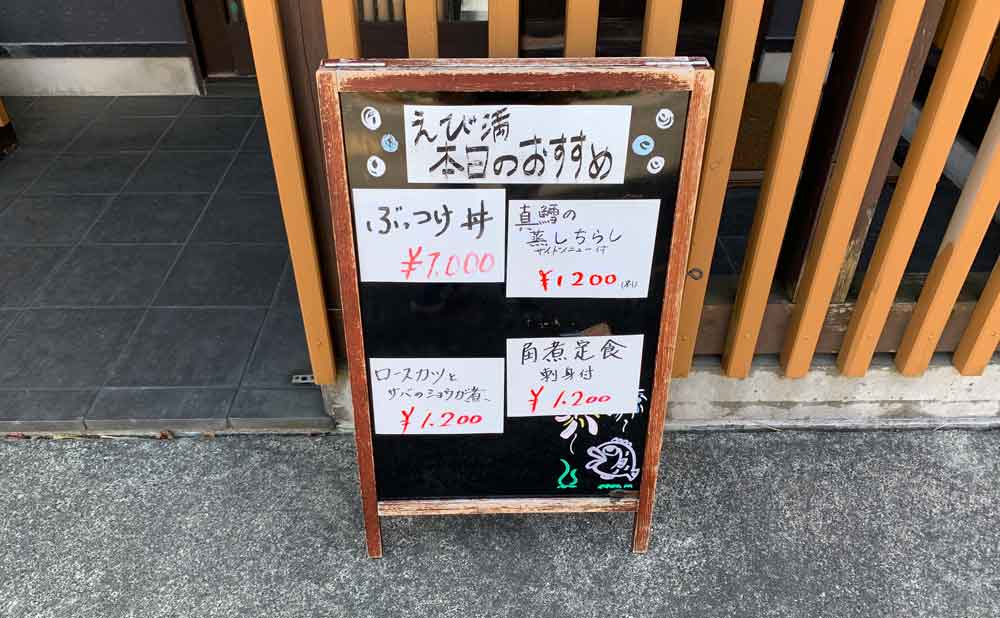 えび満
本日のおすすめ
ぶっつけ丼
¥1,000
真鱈の
蒸しちらし
サイドメニュー付
¥1200
ロースカツと
サバのショウガ煮
¥1.200
角煮定食
刺身付
¥1.200